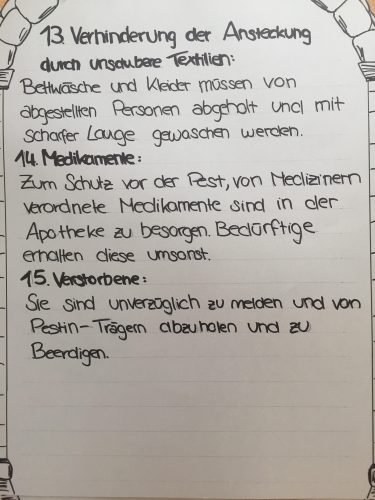 13. Verhinderung der Ansteckung
durch unsaubere Textilien:
Bettwäsche und Kleider müssen von
abgestellten Personen abgeholt und mit
scharfer Lauge gewaschen werden.
14. Medikamente:
Zum Schutz vor der Pest, von Medizinern
verordnete Medikamente sind in der
Apotheke zu besorgen. Bedürftige
erhalten diese umsonst.
15. Verstorbene:
Sie sind unverzüglich zu melden und von
Pestin-Trägern abzuholen und zu
Beerdigen.